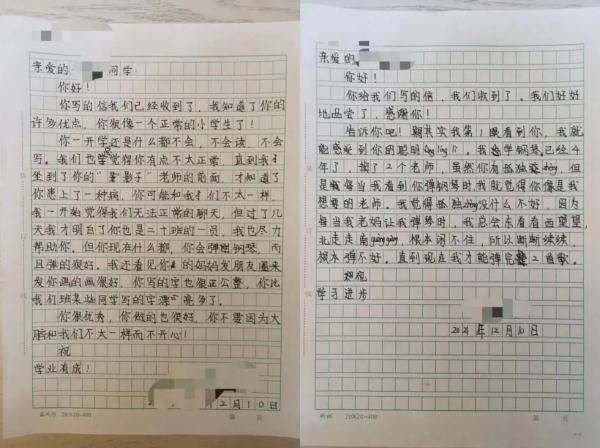 亲爱的 同学：
你好！
你写的信我们已经收到了，我知道了你的
许多优点，你很像一个正常的小学生了！
你一开学还是什么都不会，不会读，不会
写。我们也觉得你有点不太正常，直到我
坐到了你的“影子”老师的前面，才知道了
你患上了一种病，你可能和我们不太一样，
我一开始觉得我们无法正常的聊天，但过了几
天我才明白了你也是二十班的一员，我也尽力
帮助你，但你现在什么都，你会弹钢琴，而
且弹的很好。我还看见你的妈妈发朋友圈来
发你画的画很好，你写的字也很正公整，你比
我们班某些同学写的字漂亮多了。
你很优秀，你做的也很好，你不要因为大
脑和我们不太一样而不开心！
祝
学业有成！
12月10日
20×20=400
亲爱的
你好！
你给我们写的信，我们收到了。我们好好
地品尝了，感谢你！
告诉你吧！其实我第1眼看到你，我就
能感受到你的聪明líng lì！我学钢琴已经4
年了，换了2个老师，虽然你有孤独zhèng，但
是每当我看到你弹钢琴时我就觉得你像是我
想要的老师。我觉得孤独zhèng没什么不好，因为
每当我老妈让我弹琴时，我总会东看看西望望，
北走走南，根本闲不住，所以断断续续，
根本弹不好。直到现在我才能弹完2首歌。
祝
学习进步
2021年12月10日
20×20=400